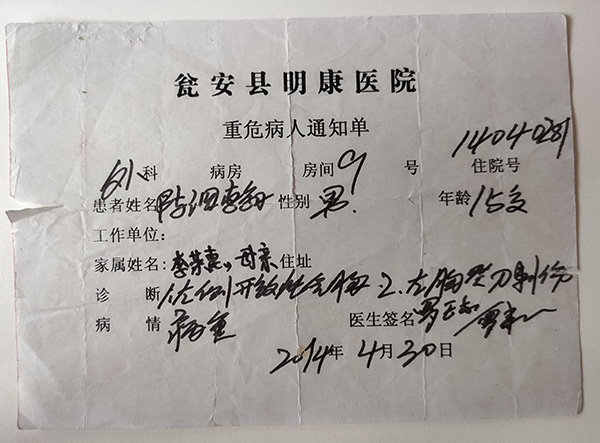 瓮安县明康医院
重危病人通知单
外科 病房 房间9号 14040281 住院号
患者姓名 陈泗翰 性别 男. 年龄 15岁
工作单位:
家属姓名: 李荣惠,母亲 住址
诊断 1.左侧开放性气胸 2.左胸壁刀刺伤
病情 病重 医生签名
2014年4月30日